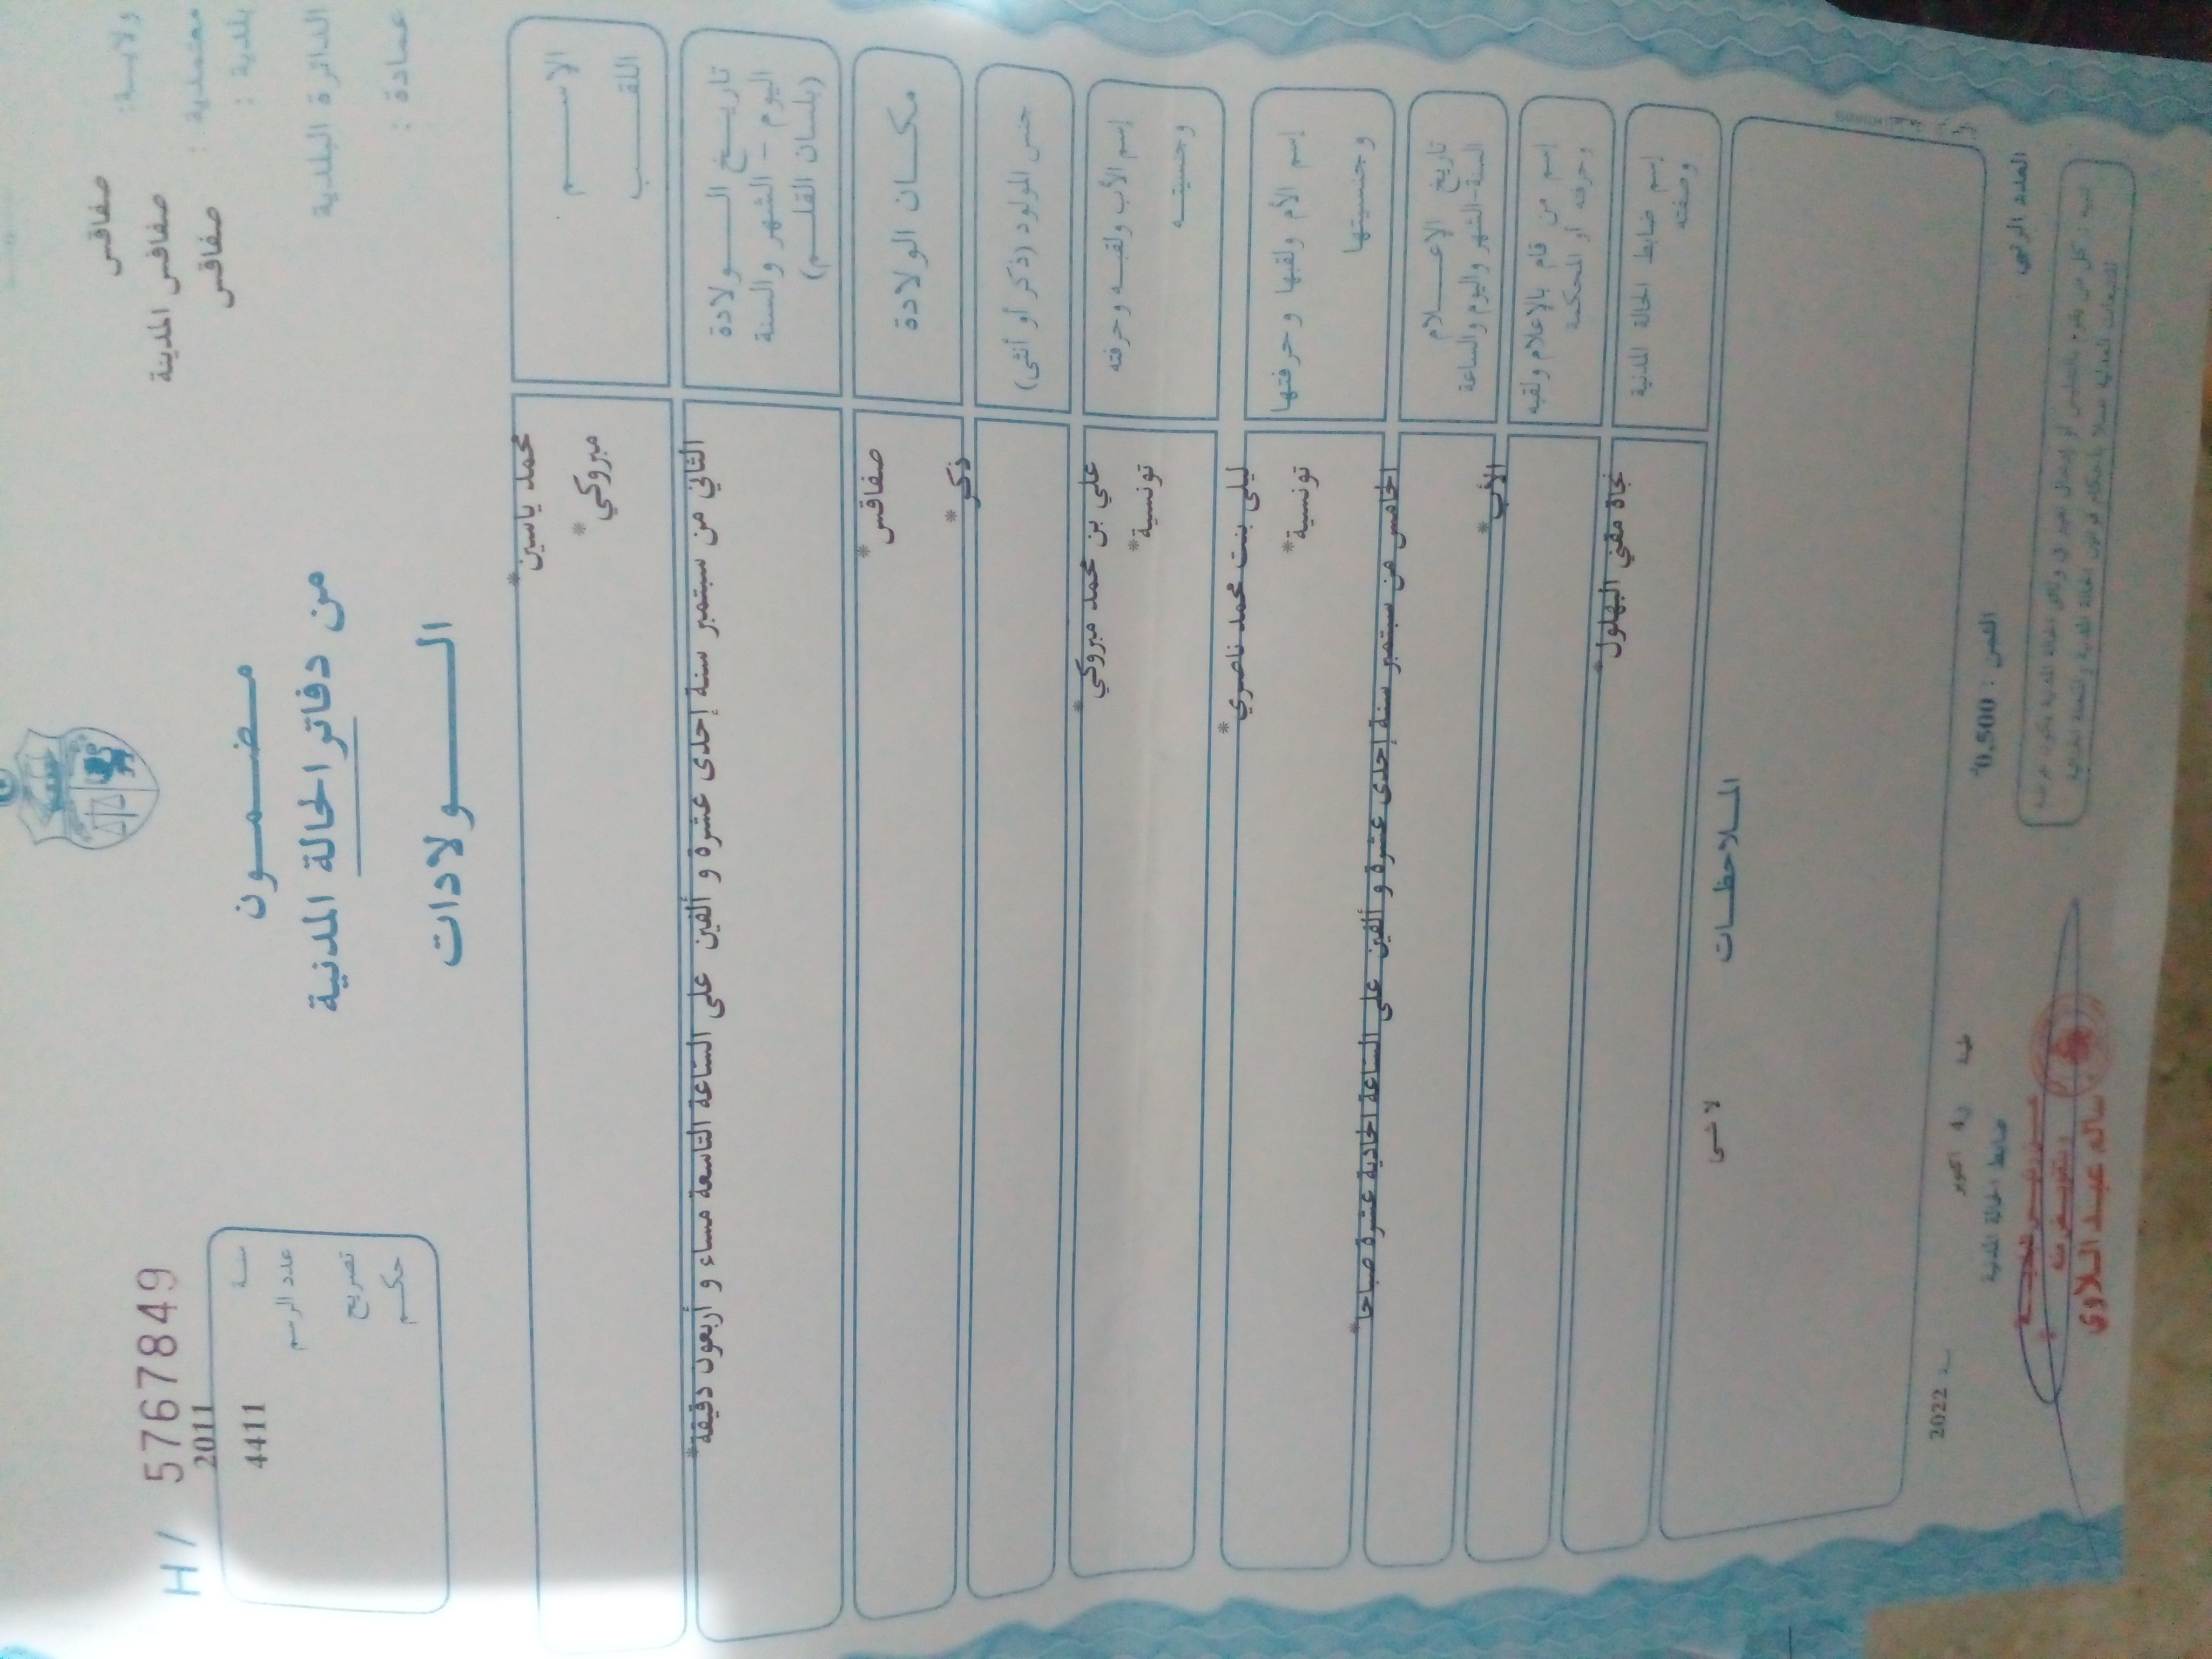 ولايـــة: صفاقس
معتمدية : صفاقس المدينة
بلدية : صفاقس
الدائرة البلدية
عمادة :
H / 5767849
سنـة 2011
عدد الرسم 4411
تصريح
حكــم
مـضـمــون
من دفاتر الحالة المدنية
الــــولادات
الإســـــم محمد ياسين*
اللقــــب مبروكي*
تاريــخ الـــولادة
اليوم – الشهر والسنة
(بلسان القلــم)
الثاني من سبتمبر سنة إحدى عشرة و ألفين على الساعة التاسعة مساء و أربعون دقيقة*
مكــان الولادة صفاقس*
جنس المولود (ذكر أو أنثى) ذكر*
إسم الأب ولقبــه وحرفته علي بن محمد مبروكي*
وجنسيتــه تونسية*
إسم الأم ولقبها وحرفتها ليلى بنت محمد ناصري*
وجنسيتها تونسية*
تاريخ الإعــــلام
السنة-الشهر واليوم والساعة
الخامس من سبتمبر سنة إحدى عشرة و ألفين على الساعة الحادية عشرة صباحا*
إسم من قام بالإعلام ولقبه
وحرفته أو المحكمة
الأب*
إسم ضابط الحالة المدنية
وصفته
نجاة مقني البهلول*
المــلاحظــات
لا شى
العدد الرتبي
الثمن : 0,500
أكتوبر 2022
ضابط الحالة المدنية